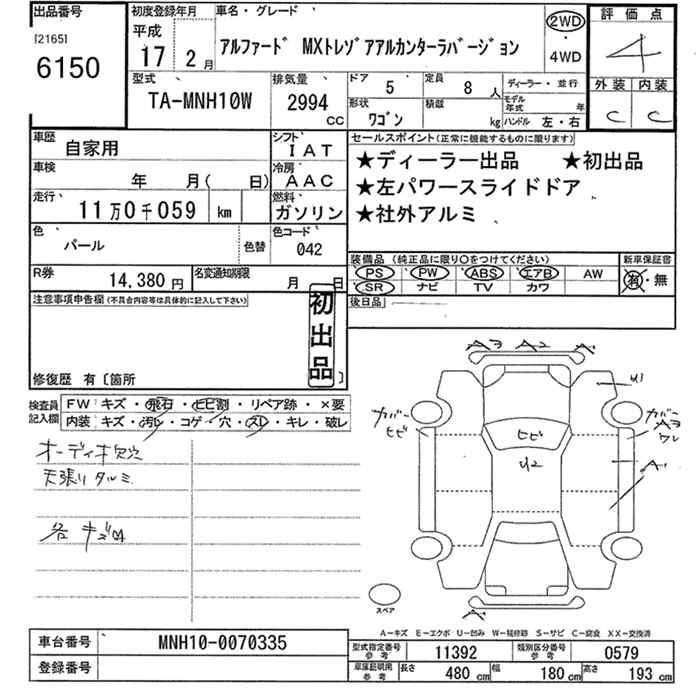 出品番号
[2165]
6150
初度登録年月
平成
17 2月
車名・グレード
アルファード MXトレゾアアルカンターラバージョン
2WD
・
4WD
評価点
4
外装 内装
C C
型式
TA-MNH10W
排気量
2994
CC
ドア 5
定員 8 人
ディーラー・並行
形状
ワゴン
積載 kg
モデル年式 年
ハンドル 左・右
車歴
自家用
シフト
IAT
車検
年 月( 日)
冷房
AAC
走行
11万0千059 km
燃料
ガソリン
色
パール
色替
色コード
042
R券
14,380円
名変通知期限
月 日
セールスポイント(正常に機能するものに限ります)
★ディーラー出品 ★初出品
★左パワースライドドア
★社外アルミ
装備品(純正品に限り○をつけてください)
新車保証書
PS PW ABS エアB AW
SR ナビ TV カワ
有・無
後日品
注意事項申告欄(不具合内容等は具体的に記入して下さい)
初出品
修復歴 有〔箇所 〕
検査員記入欄
FW キズ・飛石・ヒビ割・リペア跡・×要
内装 キズ・汚レ・コゲ・穴・スレ・キレ・破レ
オーディオ欠
天張りタルミ
各キズ凹
A3 A2 A
U1
カバー
ヒビ
ヒビ
U2
カバー
A3
ワレ
A1
A
スペア
A-キズ E-エクボ U-凹み W-補修跡 S-サビ C-腐食 XX-交換済
車台番号
MNH10-0070335
登録番号
型式指定番号 参考
11392
類別区分番号 参考
0579
車庫証明用 参考
長さ 480 cm
幅 180 cm
高さ 193 cm